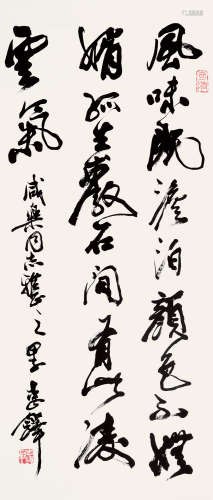 風味既澹泊顏色不嫵
媚孤生巖石間有此凌
雲氣
咸樂同志雅之 李鐸